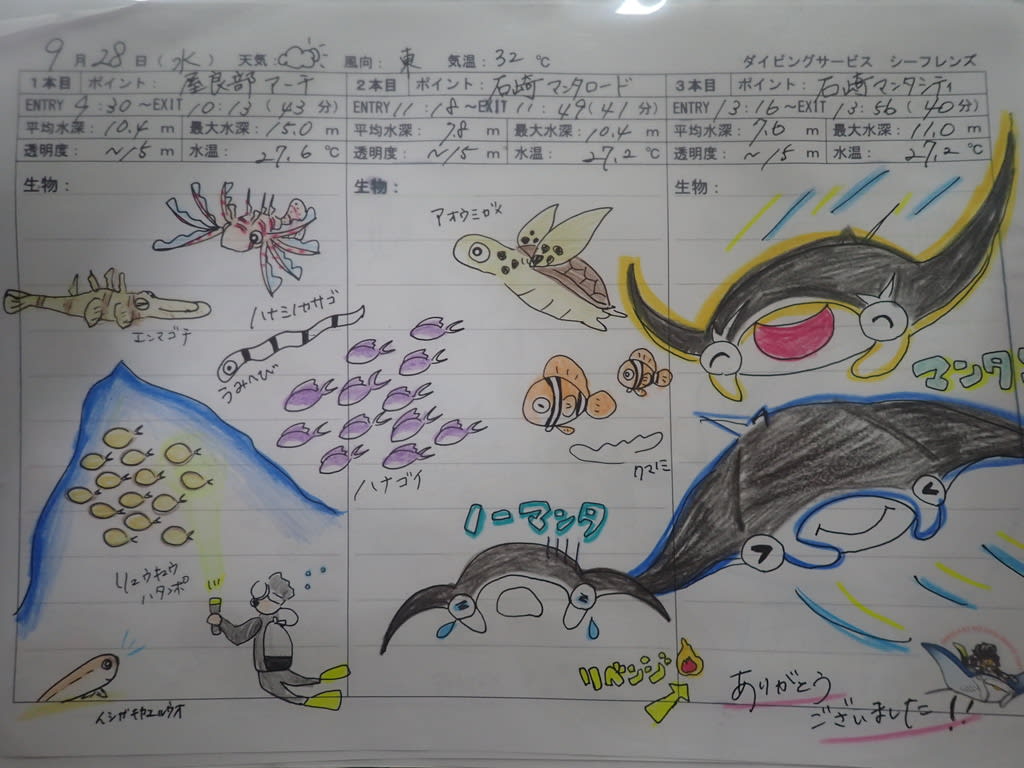 9月28日(水) 天気: 風向: 東 気温: 32 ℃ ダイビングサービス シーフレンズ
1本目 ポイント: 屋良部アーチ 2本目 ポイント: 石崎マンタロード 3本目 ポイント: 石崎マンタシティ
ENTRY 9:30~EXIT 10:13(43分) ENTRY 11:18~EXIT 11:49(41分) ENTRY 13:16~EXIT 13:56(40分)
平均水深: 10.4 m 最大水深: 15.0 m 平均水深: 7.8 m 最大水深: 10.4 m 平均水深: 7.6 m 最大水深: 11.0 m
透明度: ~15 m 水温: 27.6 ℃ 透明度: ~15 m 水温: 27.2 ℃ 透明度: ~15 m 水温: 27.2 ℃
生物: 生物: 生物:
アオウミガメ
ハナミノカサゴ
エンマゴチ
うみへび
マンタ
クマノミ
ハナゴイ
ノーマンタ
リュウキュウ
ハタンポ
リベンジ
ありがとう
ございました!!
イシガキカエルウオ